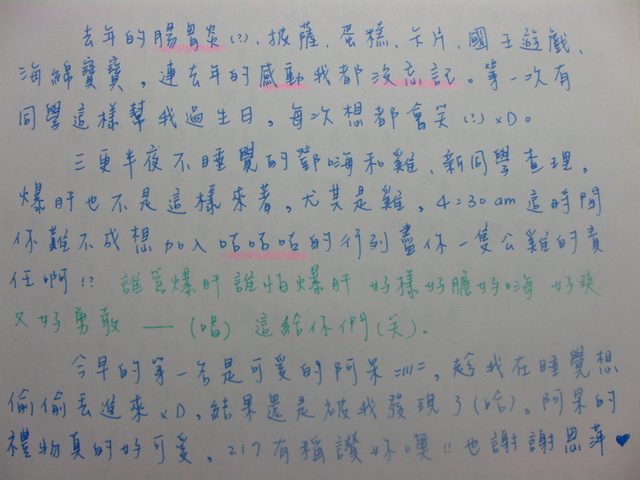 去年的腸胃炎(?)、披薩、蛋糕、卡片、國王遊戲、
海綿寶寶,連去年的感動我都沒忘記。第一次有
同學這樣幫我過生日,每次想都會笑(?)xD。
三更半夜不睡覺的鄧嗨和雞、新同學查理,
爆肝也不是這樣來著,尤其是雞,4:30am這時間
你難不成想加入咕咕咕的行列盡你一隻公雞的責
任啊!? 誰管爆肝誰怕爆肝 好樣好膽好嗨 好
又好勇敢——(唱) 這給你們(笑)。
今早的第一名是可愛的阿呆=///=,趁我在睡覺想
偷偷丟進來xD,結果還是被我發現了(哈)。阿呆的
禮物真的好可愛,217有稱讚妳噢!!也謝謝思萍♥